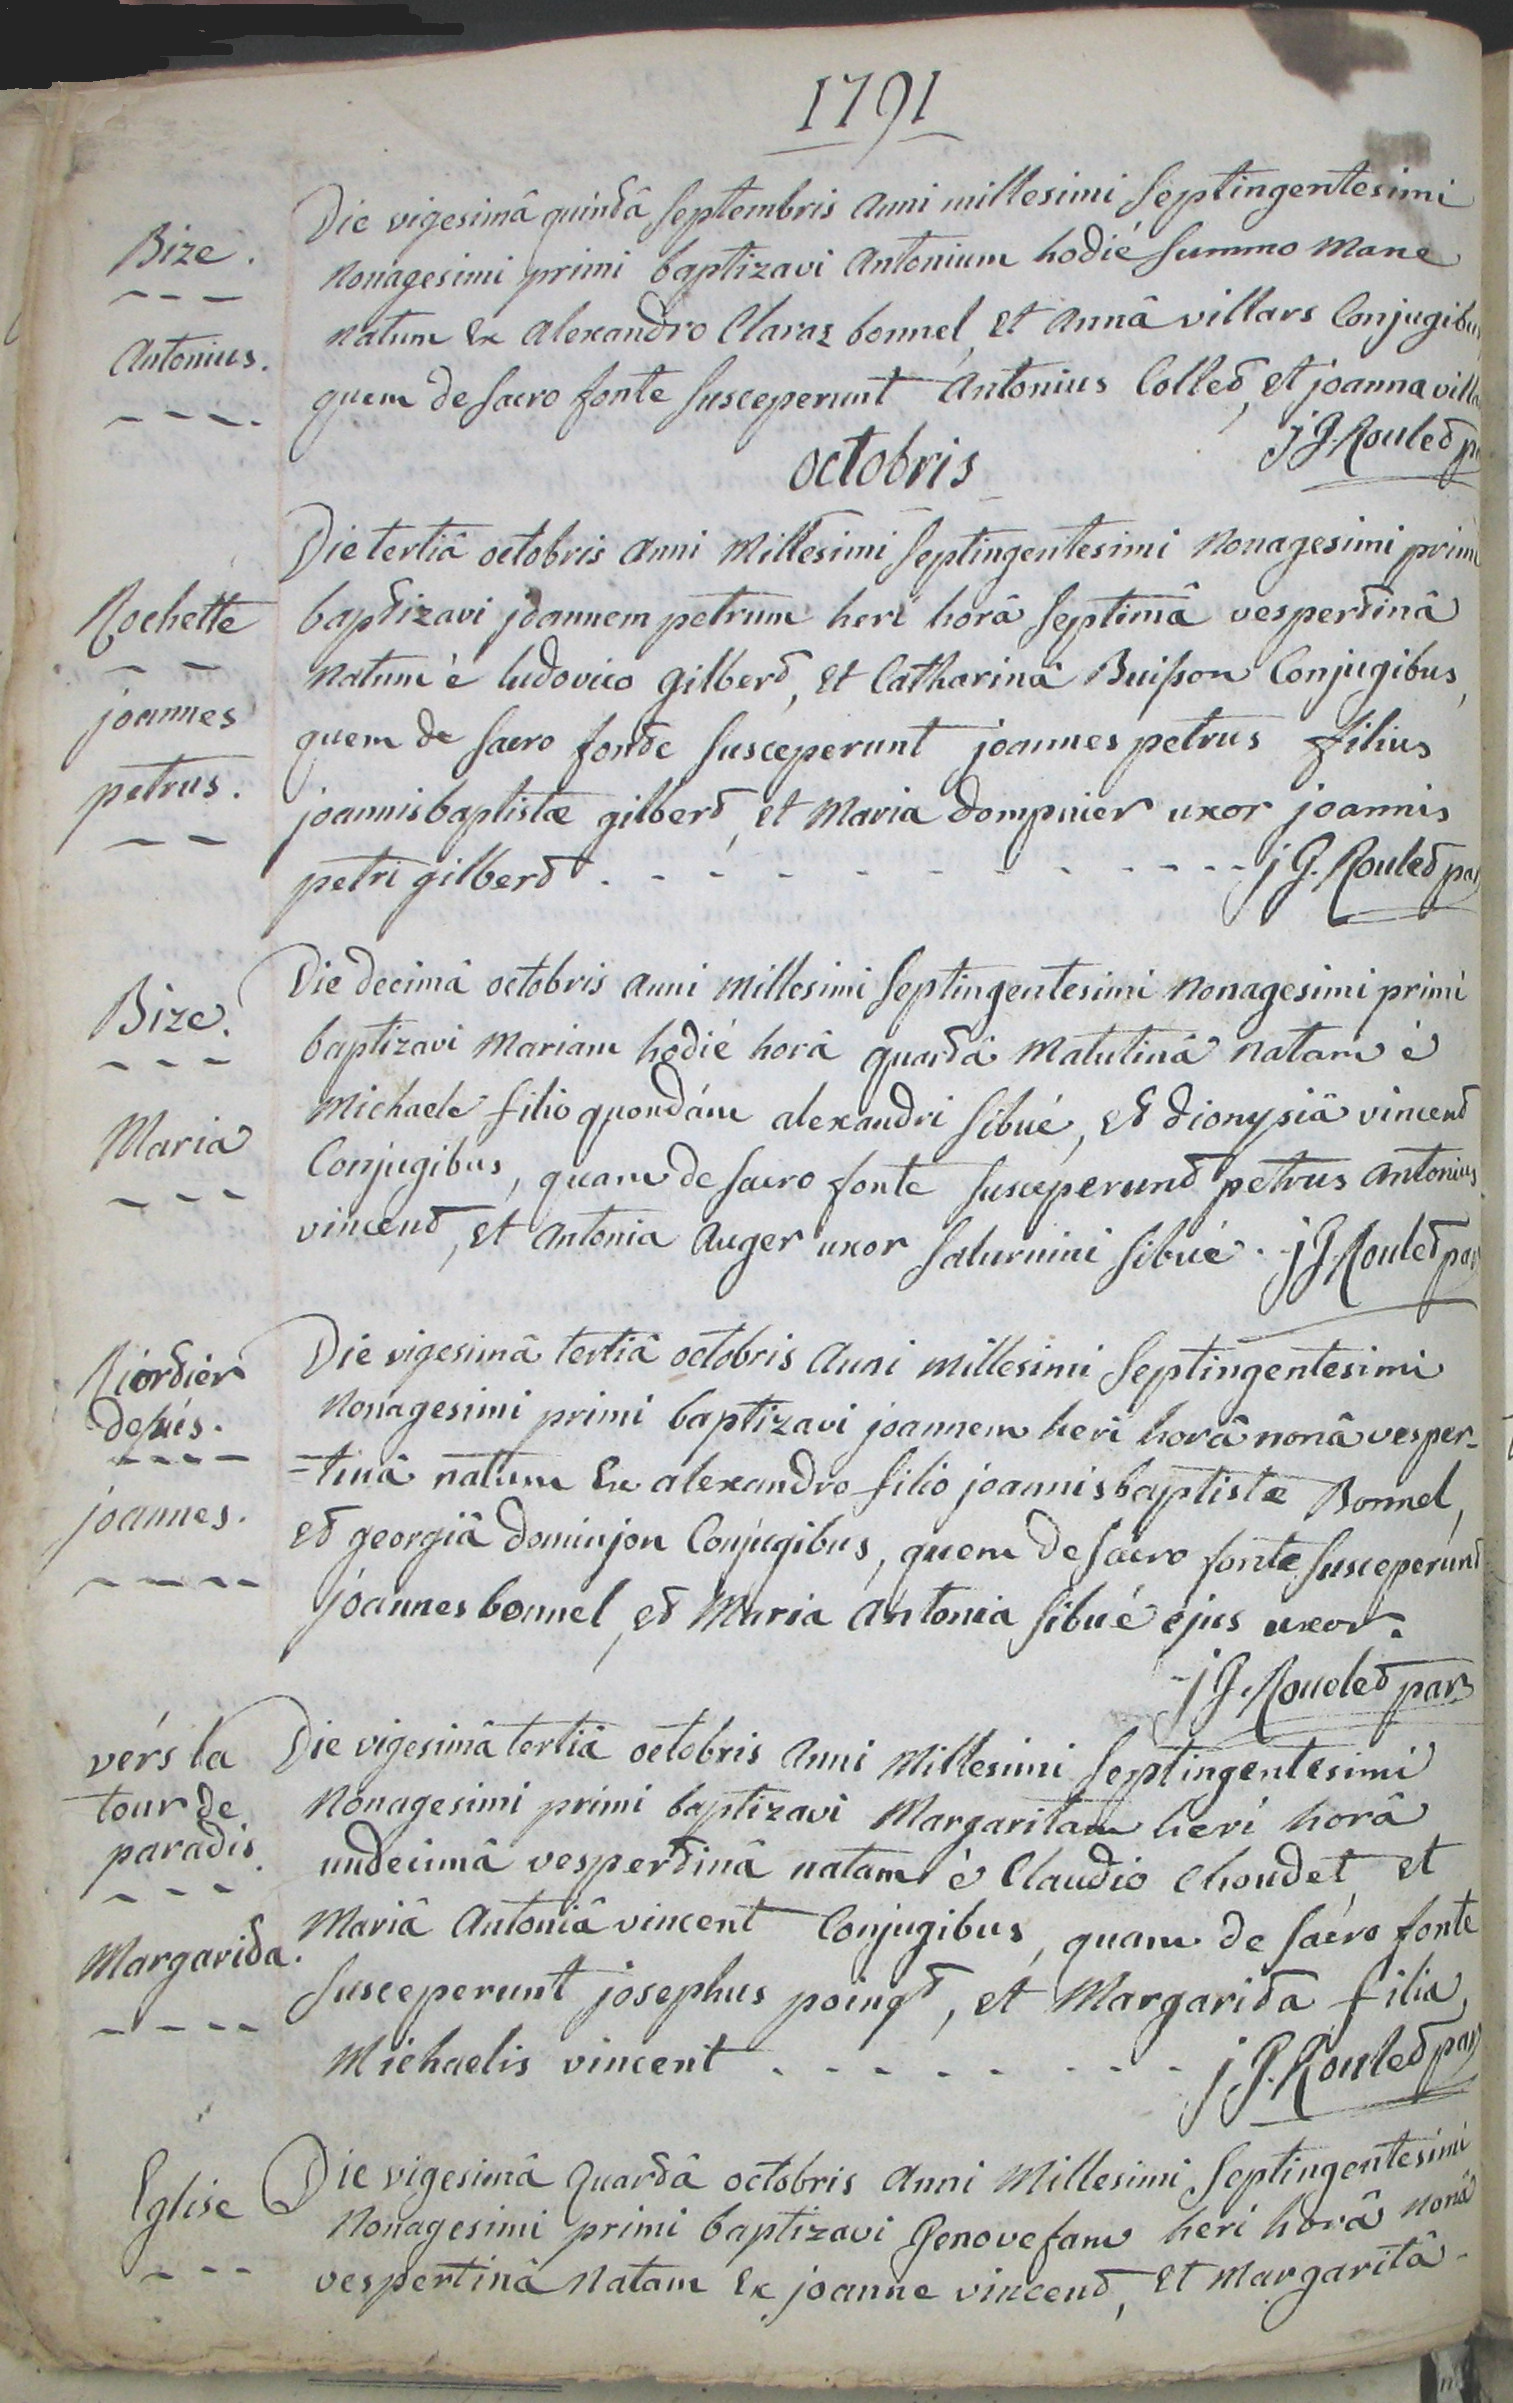 1791
Bize.
Antonius.
Die vigesimâ quintâ Septembris anni millesimi Septingentesimi
nonagesimi primi baptizavi Antonium hodié summo mane
natum Ex alexandro Claraz bonnel, et Annâ villars Conjugibus
quem de sacro fonte susceperunt Antonius Collet, et joanna villa
j G. Roulet
octobris
Rochette
joannes
petrus.
Die tertiâ octobris anni Millesimi Septingentesimi Nonagesimi primi
baptizavi joannem petrum heri horâ septimâ vespertinâ
natum è ludovico gilbert, et Catharinâ Buisson Conjugibus,
quem de sacro fonte susceperunt joannes petrus filius
joannisbaptistæ gilbert, et Maria dompnier uxor joannis
petri gilbert - - - - - - - - - - j G. Roulet par
Bize.
Maria
Die decimâ octobris anni Millesimi Septingentesimi Nonagesimi primi
baptizavi Mariam hodié horâ quartâ Matutinâ natam è
Michaele filio quondám alexandri sibué, et dionysiâ vincent
Conjugibus, quam de sacro fonte susceperunt petrus antonius
vincent, et antonia auger uxor saturnini sibué. j G. Roulet par
Riortier
dessús.
joannes.
Die vigesimâ tertiâ octobris anni millesimi Septingentesimi
nonagesimi primi baptizavi joannem heri horâ nonâ vesper-
-tinâ natum Ex alexandro filio joannisbaptistæ Bonnel,
et georgiâ dominjon Conjugibus, quem de sacro fonte susceperunt
joannes bonnel, et Maria Antonia sibué ejus uxor.
- j G. Roulet par
vérs la
tour de
paradis.
Margarita.
Die vigesimâ tertiâ octobris anni Millesimi Septingentesimi
Nonagesimi primi baptizavi Margaritam heri horâ
undecimâ vespertinâ natam è Claudio Choudet, et
Mariâ Antoniâ vincent Conjugibus, quam de sacro fonte
susceperunt josephus poingt, et Margarita filia
Michaelis vincent - - - - - - - - j G. Roulet par
Eglise
Die vigesimâ quartâ octobris anni Millesimi Septingentesimi
Nonagesimi primi baptizavi Genovefam heri horâ nonâ
vespertinâ Natam Ex joanne vincent, et Margaritâ -